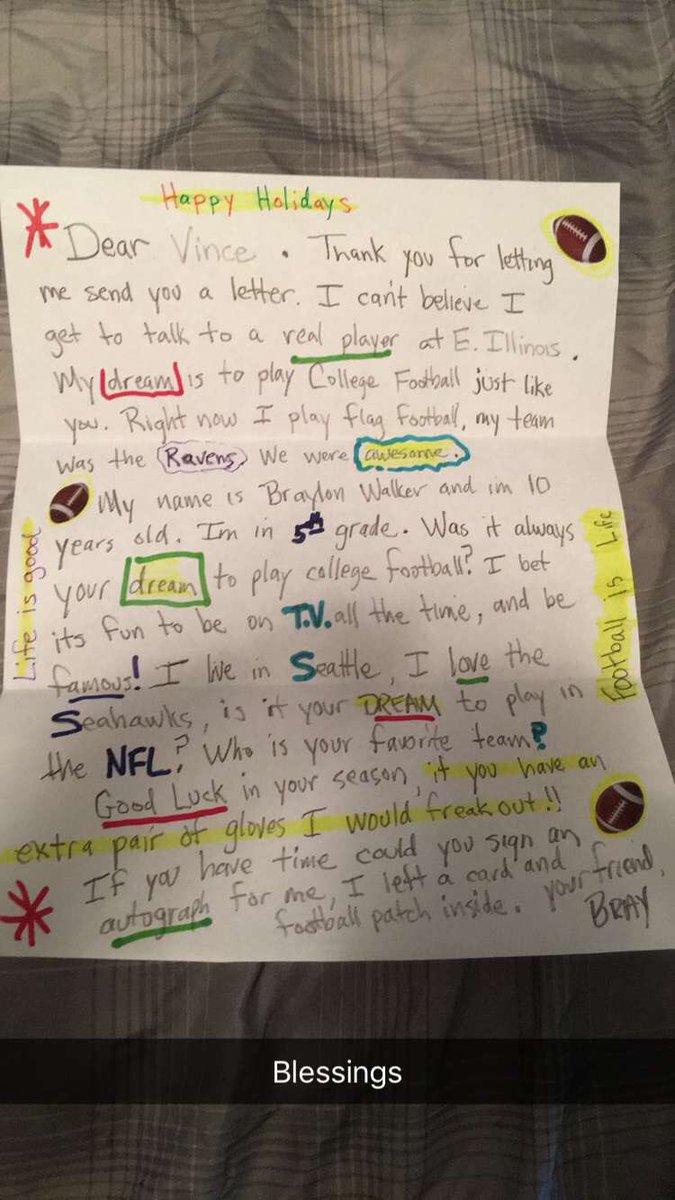 Happy Holidays
Dear Vince . Thank you for letting
me send you a letter. I can't believe I
get to talk to a real player at E. Illinois.
My dream is to play College Football just like
you. Right now I play flag football, my team
was the Ravens. We were awesome.
My name is Braylon Walker and im 10
years old. Im in 5th grade. Was it always
your dream to play college football? I bet
its fun to be on T.V. all the time, and be
famous! I live in Seattle, I love the
Seahawks, is it your DREAM to play in
the NFL? Who is your favorite team?
Good Luck in your season, if you have an
extra pair of gloves I would freak out!!
If you have time could you sign an
autograph for me, I left a card and
football patch inside. your friend,
BRAY
Life is good
Football is Life
Blessings